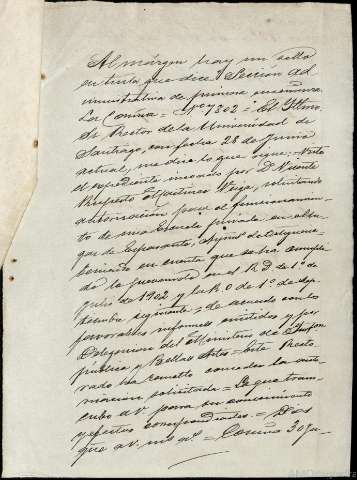 Al márgen hay un sello
en tinta que dice: Sección ad
ministrativa de primera enseñanza
La Coruña = Nº 1302 = El Iltmo
Sr Rector de la Universidad de
Santiago, con fecha 28 de Junio
actual, me dice lo que sigue: Visto
el expediente incoado por D. Vicente
Ruperto Martinez Veiga, solicitando
autorización para el funcionamien-
to de una Escuela privada en el lu-
gar de Esparante,
teniendo en cuenta que se ha cumpli
do lo prevenido en el R D de 1º de
Julio de 1902 y la R O de 1º de Sep
tiembre siguiente, de acuerdo con los
favorables informes emitidos y por
Delegación del Ministerio de Instrón
pública y Bellas Artes = Este Recto
rado ha resuelto conceder la auto
rización solicitada = Lo que tras
cribo a V para su conocimiento
y efectos correspondientes = Dios
gue a V. ms as = Coruña 30 Ju-